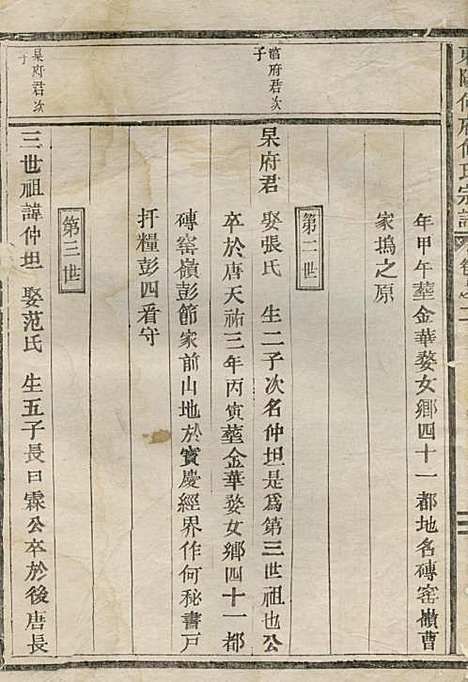 東陽何府何氏宗譜
年甲午塟金華婺女鄉四十一都地名磚窑嶺曹
家塢之原
第二世
富府君次子
杲府君 娶張氏 生二子次名仲坦是爲第三世祖也公
卒於唐天祐三年丙寅塟金華婺女鄉四十一都
磚窑嶺彭節家前山地於寳慶經界作何秘書戸
扞糧彭四看守
第三世
杲府君次子
三世祖諱仲坦 娶范氏 生五子長曰霖公卒於後唐長